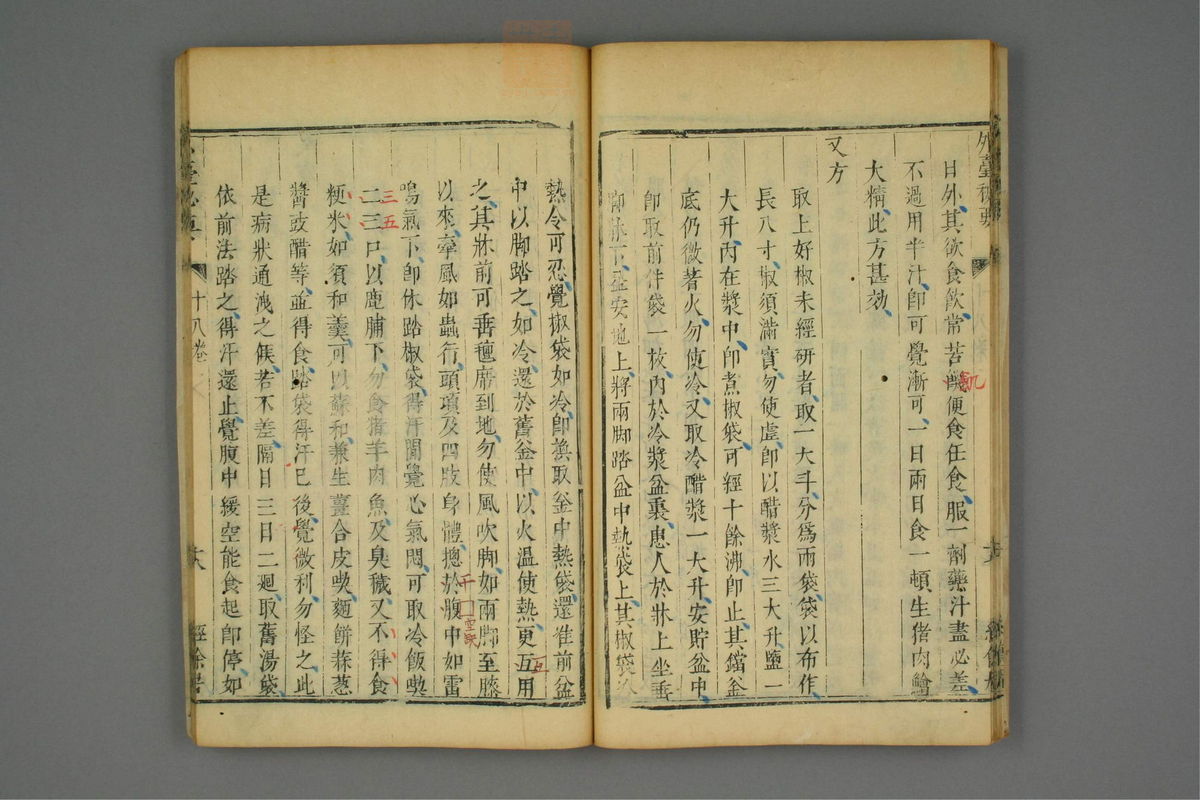 外臺秘要
日外其欲食飲常苦饑便食任食服一劑藥汁盡必差
飢
不過用半汁卽可覺漸可一日兩日食一頓生猪肉鱠
大精此方甚効
又方
取上好椒未經研者取一大斗分爲兩袋袋以布作
長八寸椒須滿實勿使虛卽以醋漿水三大升鹽一
大升內在漿中卽煮椒袋可經十餘沸卽止其鐺釜
底仍微著火勿使冷又取冷醋漿一大升安貯盆中
卽取前件袋一枚內於冷漿盆裏患人於牀上坐垂
脚牀下盆安地上將兩脚踏盆中熱袋上其椒袋
熱令可忍覺椒袋如冷卽換取釜中熱袋還准前盆
中以脚踏之如冷還於舊釜中以火溫使熱更互用
互
之其牀前可垂氊席到地勿使風吹脚如兩脚至膝
以來牽風如蟲行頭項及四肢身體摠於腹中如雷
鳴氣下卽休踏椒袋得汗聞覺心氣悶可取冷飯喫
三五
二三口以鹿脯下勿食猪羊肉魚及臭穢又不得食
粳米如須和羹可以蘇和兼生薑合皮喫麵餅蒜葱
醬豉醋等並得食踏袋得汗已後覺微利勿怪之此
是病狀通洩之候若不差隔日三日二廻取舊湯袋
依前法踏之得汗還止覺腹中緩空能食起卽停如
十八卷
經餘居